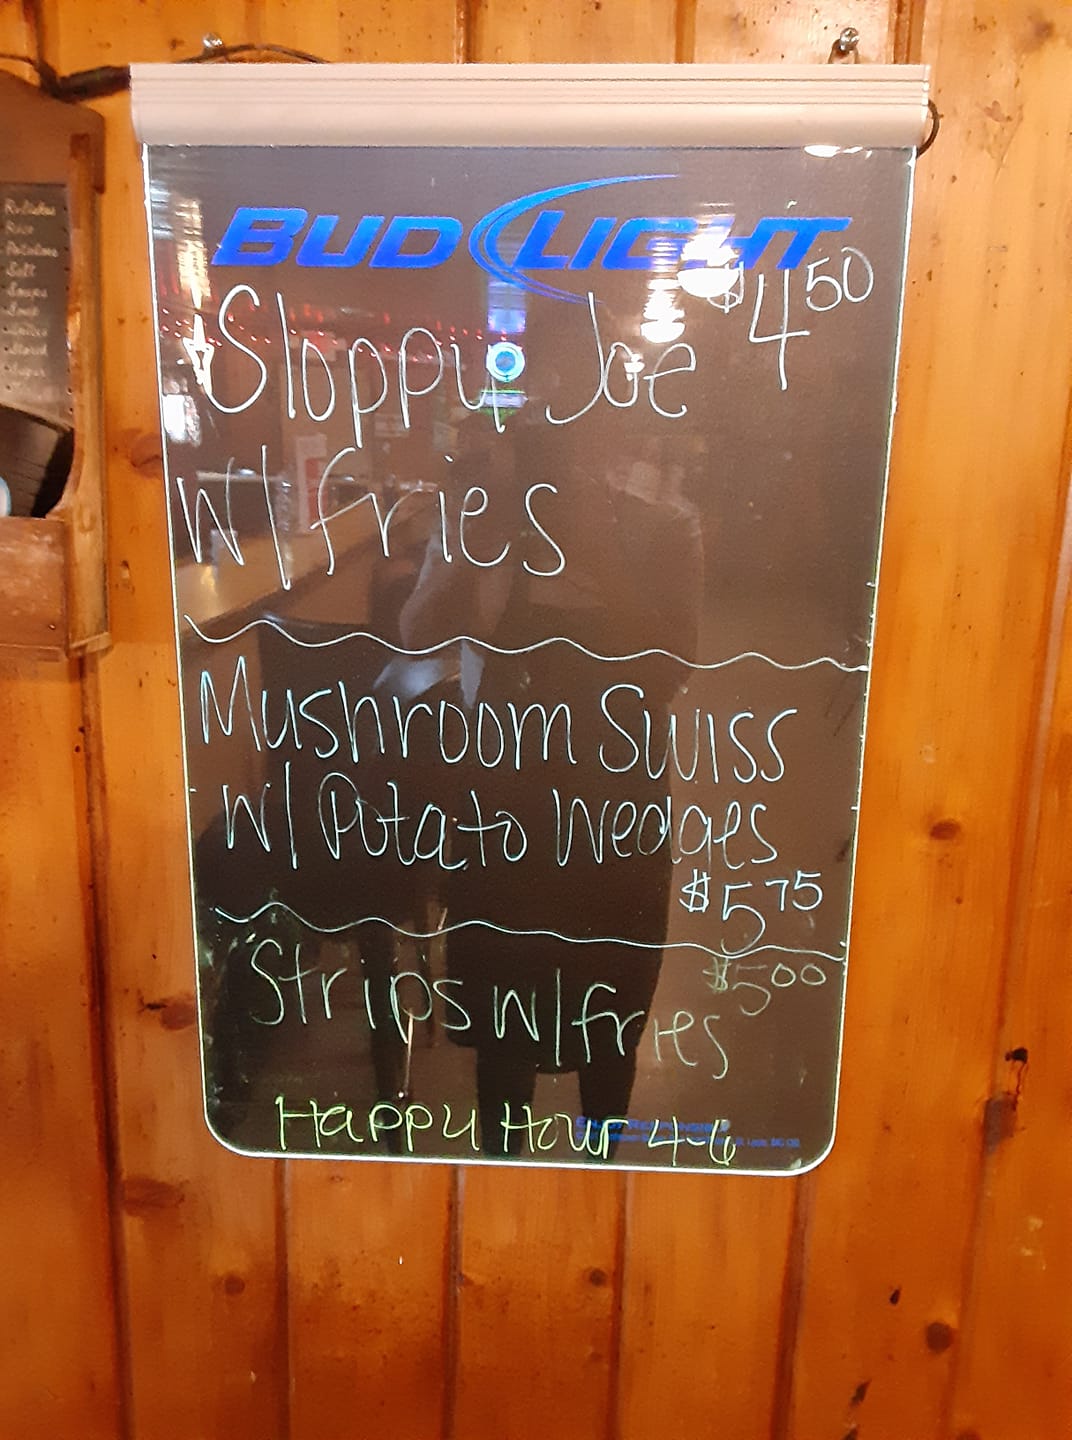 BUD LIGHT
$4 50
Sloppy Joe
w/ fries
Mushroom Swiss
w/ Potato Wedges
$5 75
Strips w/ fries $5 00
Happy Hour 4-6